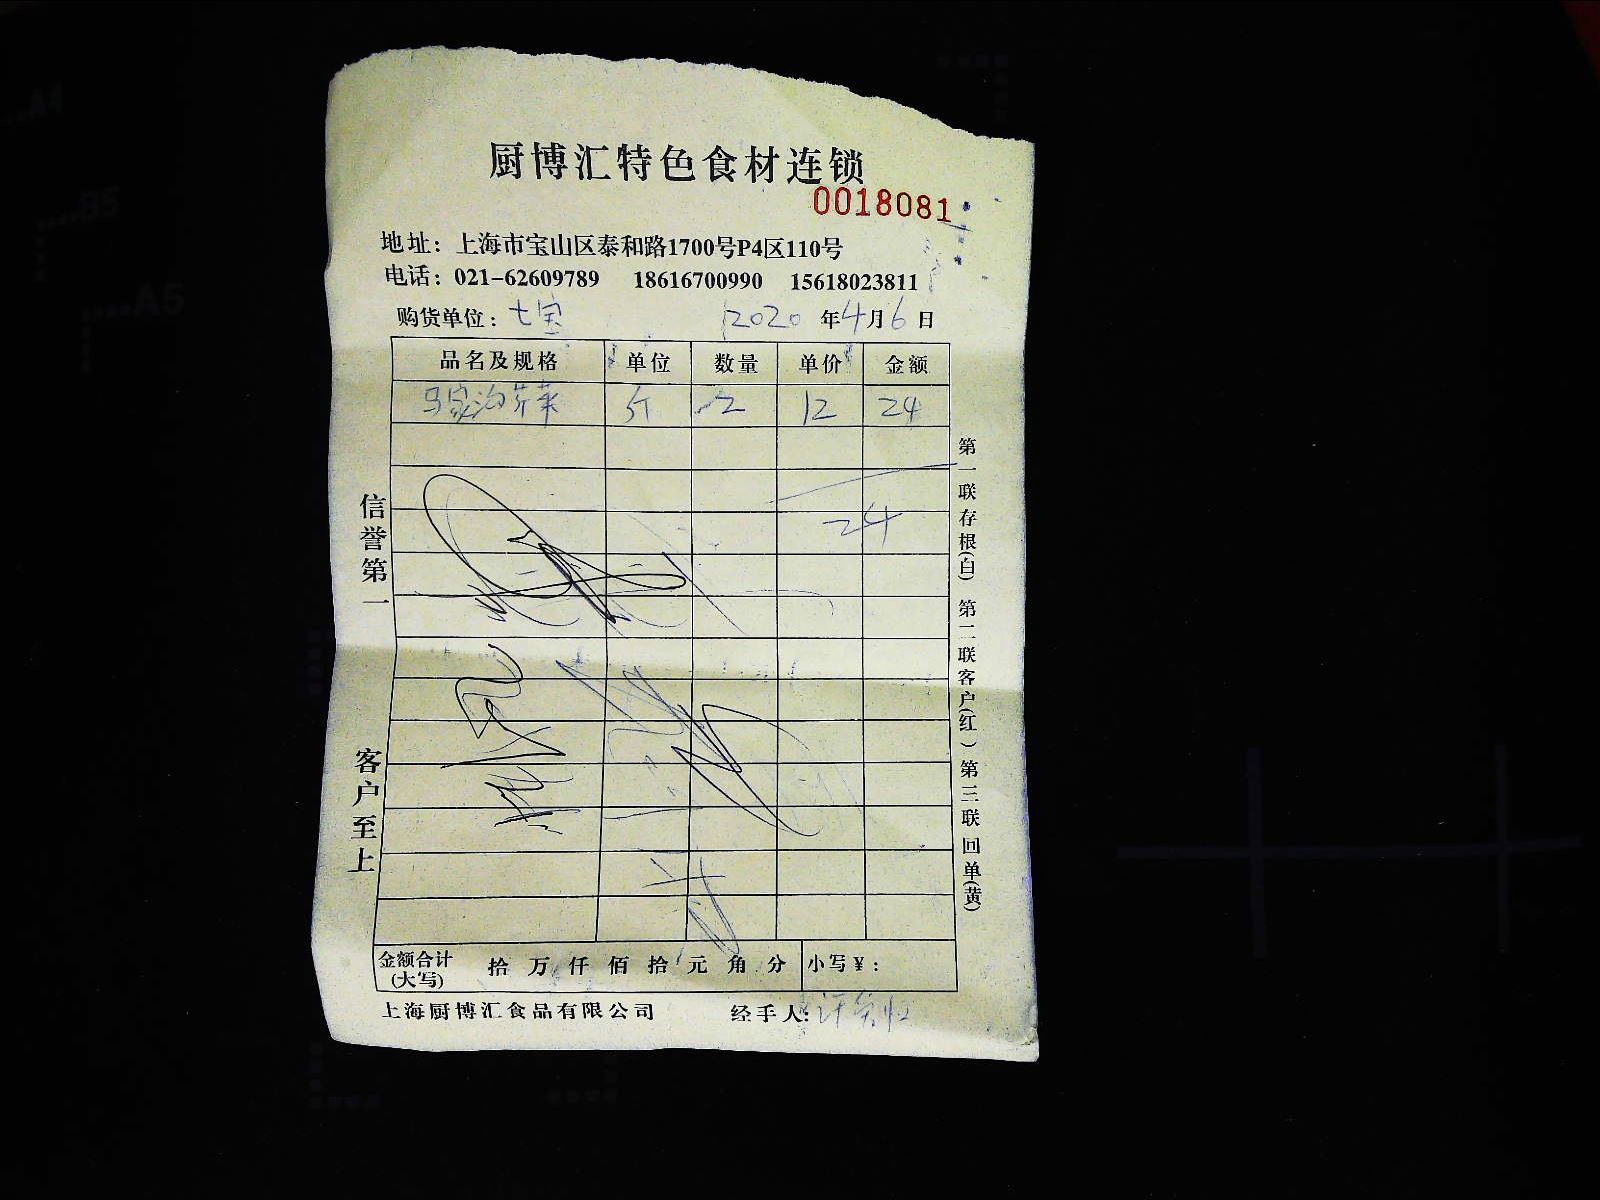 厨博汇特色食材连锁
0018081
地址：上海市宝山区泰和路1700号P4区110号
电话：021-62609789 18616700990 15618023811
购货单位：七宝 2020年4月6日
品名及规格 单位 数量 单价 金额
马家沟芹菜 斤 2 12 24
24
信誉第一
客户至上
第一联存根(白) 第二联客户(红) 第三联回单(黄)
金额合计(大写) 拾 万 仟 佰 拾 元 角 分 小写￥：
上海厨博汇食品有限公司 经手人:
A4
B5
A5